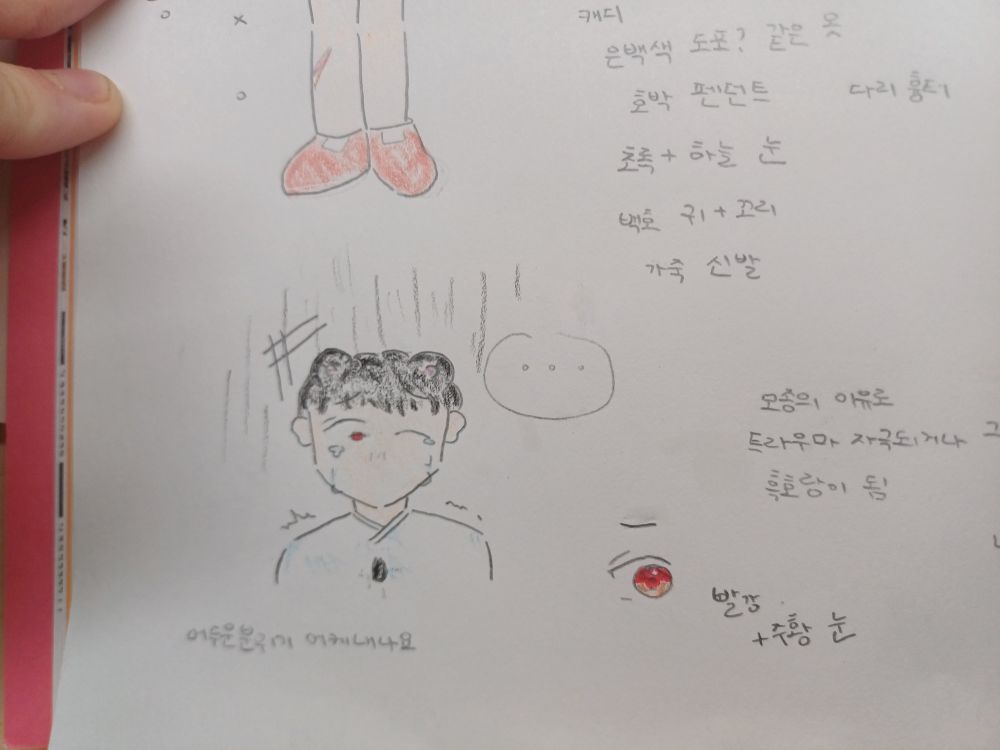 캐디
은백색 도포? 같은 옷
호박 펜던트
다리 흉터
초록 + 하늘 눈
백호 귀 + 꼬리
가죽 신발
...
모종의 이유로
트라우마 자극되거나 그
흑호랑이 됨
빨강
+주황 눈
어두운분위기 어케내나요